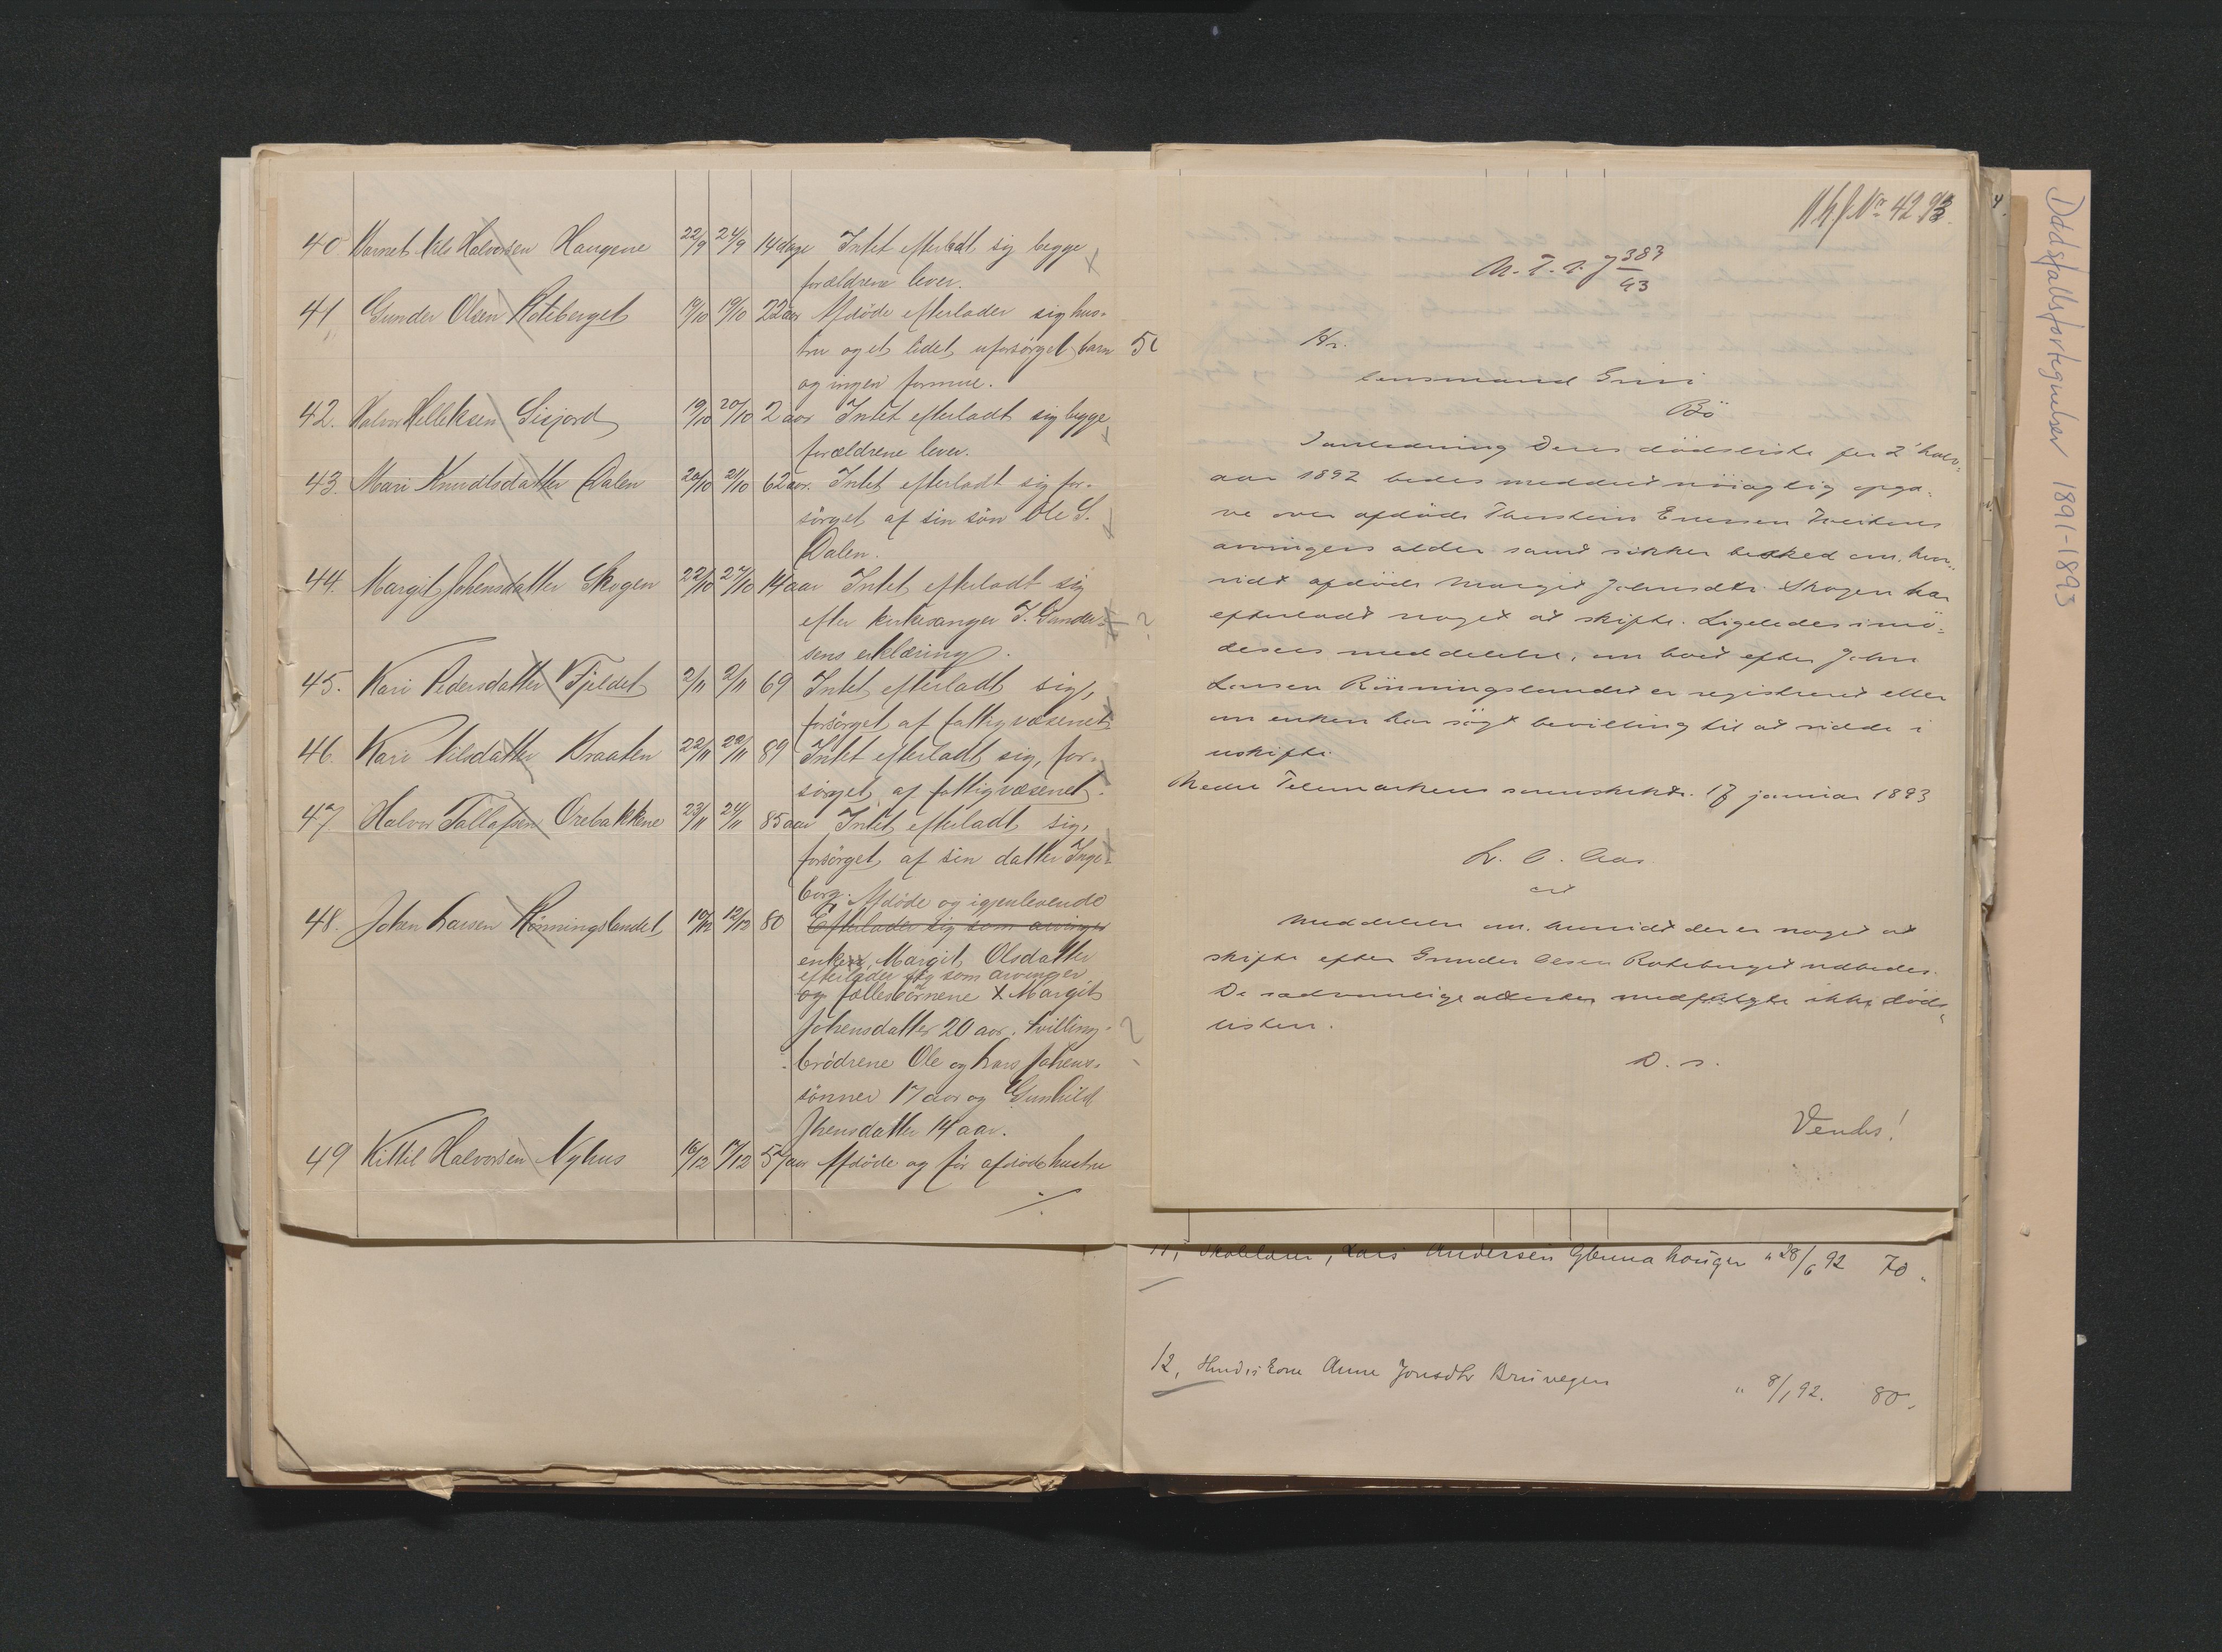 40 Barnet Nils Halvorsen Haugene 22/9 24/9 14 dage Intet efterladt sig begge
forældrene lever.
41, Gunder Olsen Roteberget 19/10 22 aar Afdöde efterlader sig hus-
tru og et lidet uforsörget barn
og ingen formue.
42. Halvor Helleksen Gisjord 19/10 20/10 2 aar Intet efterladt sig begge
forældrene lever.
43. Mari Knudtsdatter Dalen 20/10 21/10 62 aar. Intet efterladt sig for-
sörget af sin sön Ole S.
Dalen.
44. Margit Johensdatter Skogen 22/10 24/10 14 aar Intet efterladt sig
efter kirkesanger J. Gunder-
sens erklæring.
45. Kari Pedersdatter Fjeldet 2/11 2/11 69 Intet efterladt sig,
forsörget af fattigvæsenet
46. Kari Nilsdatter Braaten 22/11 22/11 89 Intet efterladt sig, for-
sörget af fattigvæsenet.
47 Halvor Tallafsen Orebakkene 23/11 24/11 85 aar Intet efterladt sig,
forsörget af sin datter Inge-
borg. Afdöde og igjenlevende
48. Johen Larsen Rönningslandet 10/12 12/12 80 Efterlader sig som arvinger
enken Margit Olsdatter
efterlader sig som arvinger
og fællesbörnene X Margit
Johensdatter 20 aar. tvilling-
brödrene Ole og Lars Johens-
sönner 17 aar og Gunhild
Jhensdatter 14 aar.
49 Kittil Halvorsen Nyhus 16/12 17/12 57 aar Afdöde og för afdöde hustru
./.
No 42 93.
N. T. s. J 383/93
Hr.
lensmand Grivi
Bö
I anledning Deres dödsliste for 2' halv-
aar 1892 bedes meddelt nöiagtig opga-
ve over afdöde Thorstein Enersen Tveitens
arvingers alder samt sikker besked om, hvor-
vidt afdöde Margit Johnsdtr. Skogen har
efterladt noget at skifte. Ligeledes imö-
desees meddelelse, om boet efter John
Larsen Rönningslandet er registreret eller
om enken har sögt bevilling til at sidde i
uskifte.
Nedre Telemarkens sorenskrivr. 17 januar 1893
L. C. Aas
Meddelelse om, hvorvidt der er noget at
skifte efter Gunder Olsen Roteberget udbedes.
De sædvanlige attester medfulgte ikke döds-
listen.
D. s.
Vendes!
11, Skolelærer, Lars Andersen Glennahougen " 28/6 92 70
12, Huuskone Anne Jonsdtr Bruvegen " 8/1 92. 80.
Dødsfallsfortegnelser 1891-1893